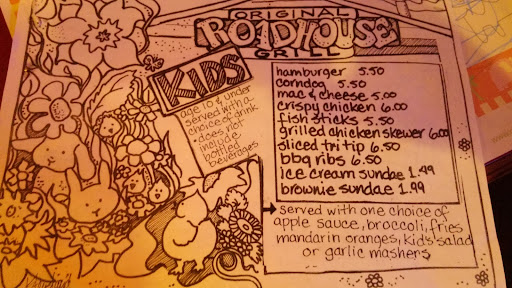 ORIGINAL
ROADHOUSE
GRILL
KIDS
age 10 & under
served with a
choice of drink
• does not
include
bottled
beverages
hamburger 5.50
corndog 5.50
mac & cheese 5.00
crispy chicken 6.00
fish sticks 5.50
grilled chicken skewer 6.00
sliced tri tip 6.50
bbq ribs 6.50
ice cream sundae 1.49
brownie sundae 1.99
→ served with one choice of
apple sauce, broccoli, fries
mandarin oranges, kid's salad
or garlic mashers